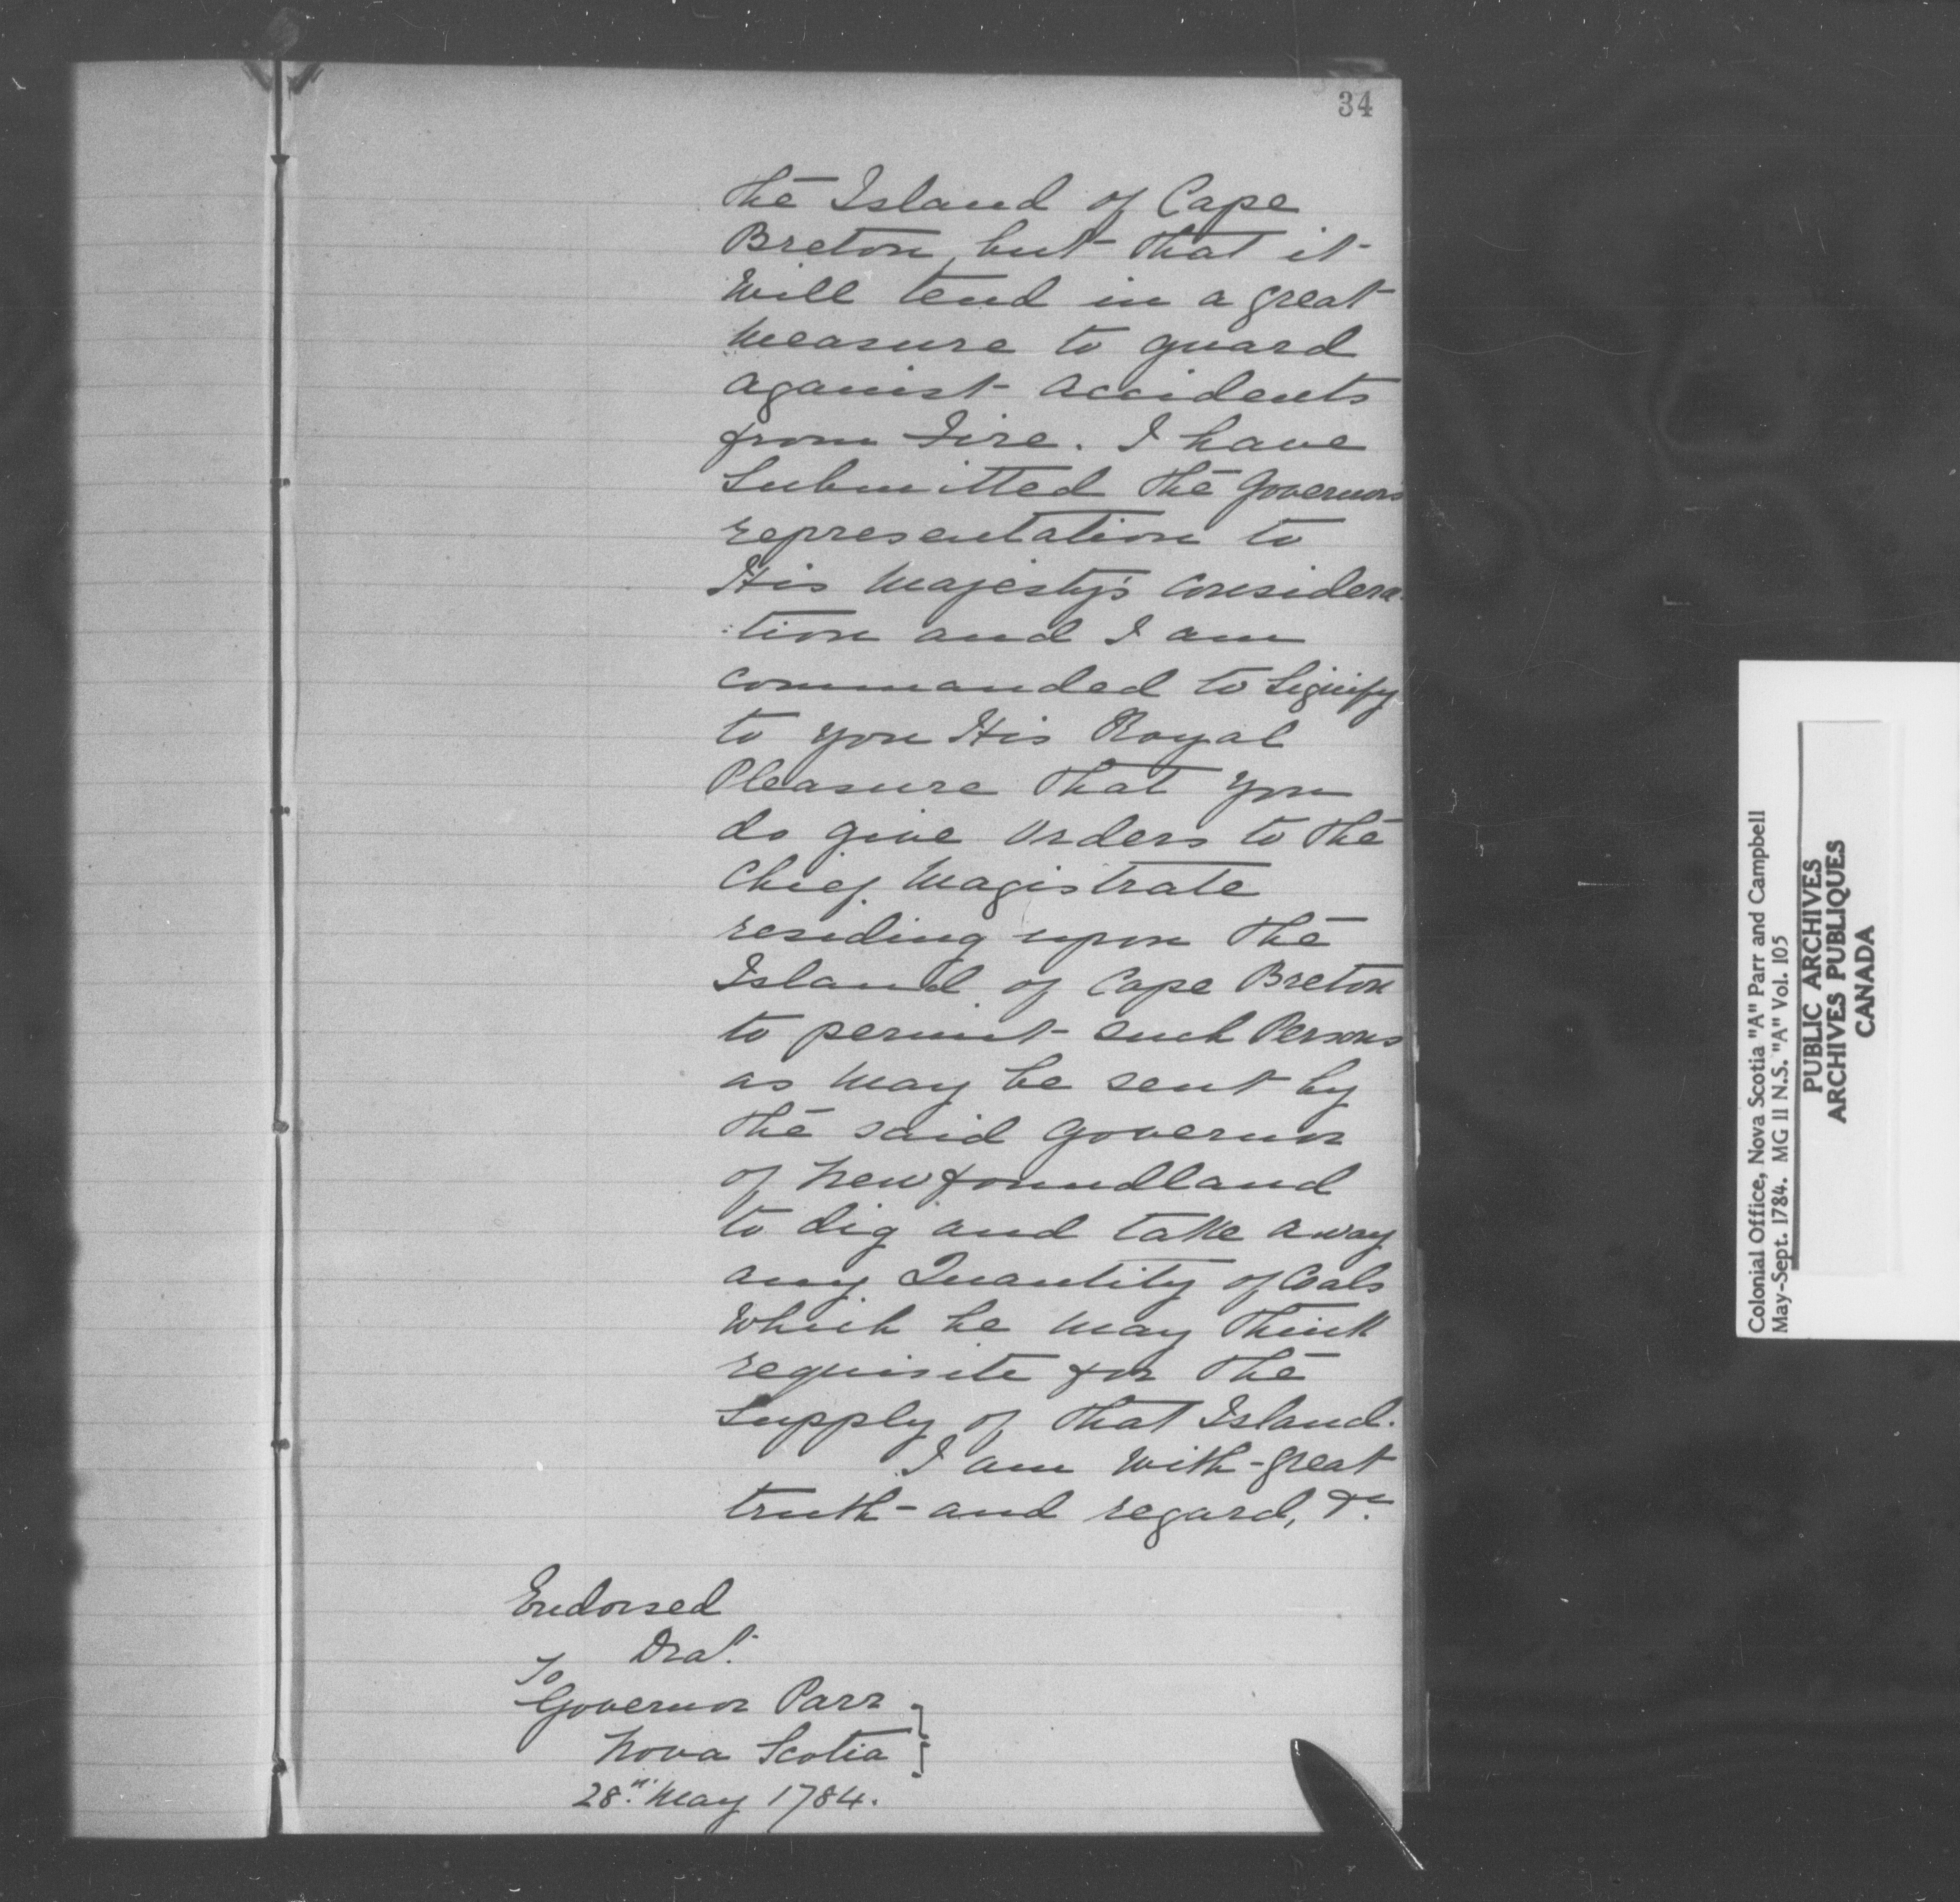 34
the Island of Cape
Breton, but that it
Will tend in a great
Measure to guard
against accidents
from Fire. I have
Submitted the Governors
representation to
His Majesty's considera-
:tion and I am
commanded to Signify
to you His Royal
Pleasure that you
do give Orders to the
Chief Magistrate
residing upon the
Island of Cape Breton
to permit such Persons
as may be sent by
the said Governor
of Newfoundland
to dig and take away
any Quantity of Coals
Which he may think
requisite for the
Supply of that Island.
I am with great
truth and regard, &c.
Endorsed
Drat.
To
Governor Parr
Nova Scotia
28th. May 1784.
Colonial Office, Nova Scotia "A" Parr and Campbell
May-Sept. 1784. MG II N.S. "A" Vol. 105
PUBLIC ARCHIVES
ARCHIVES PUBLIQUES
CANADA